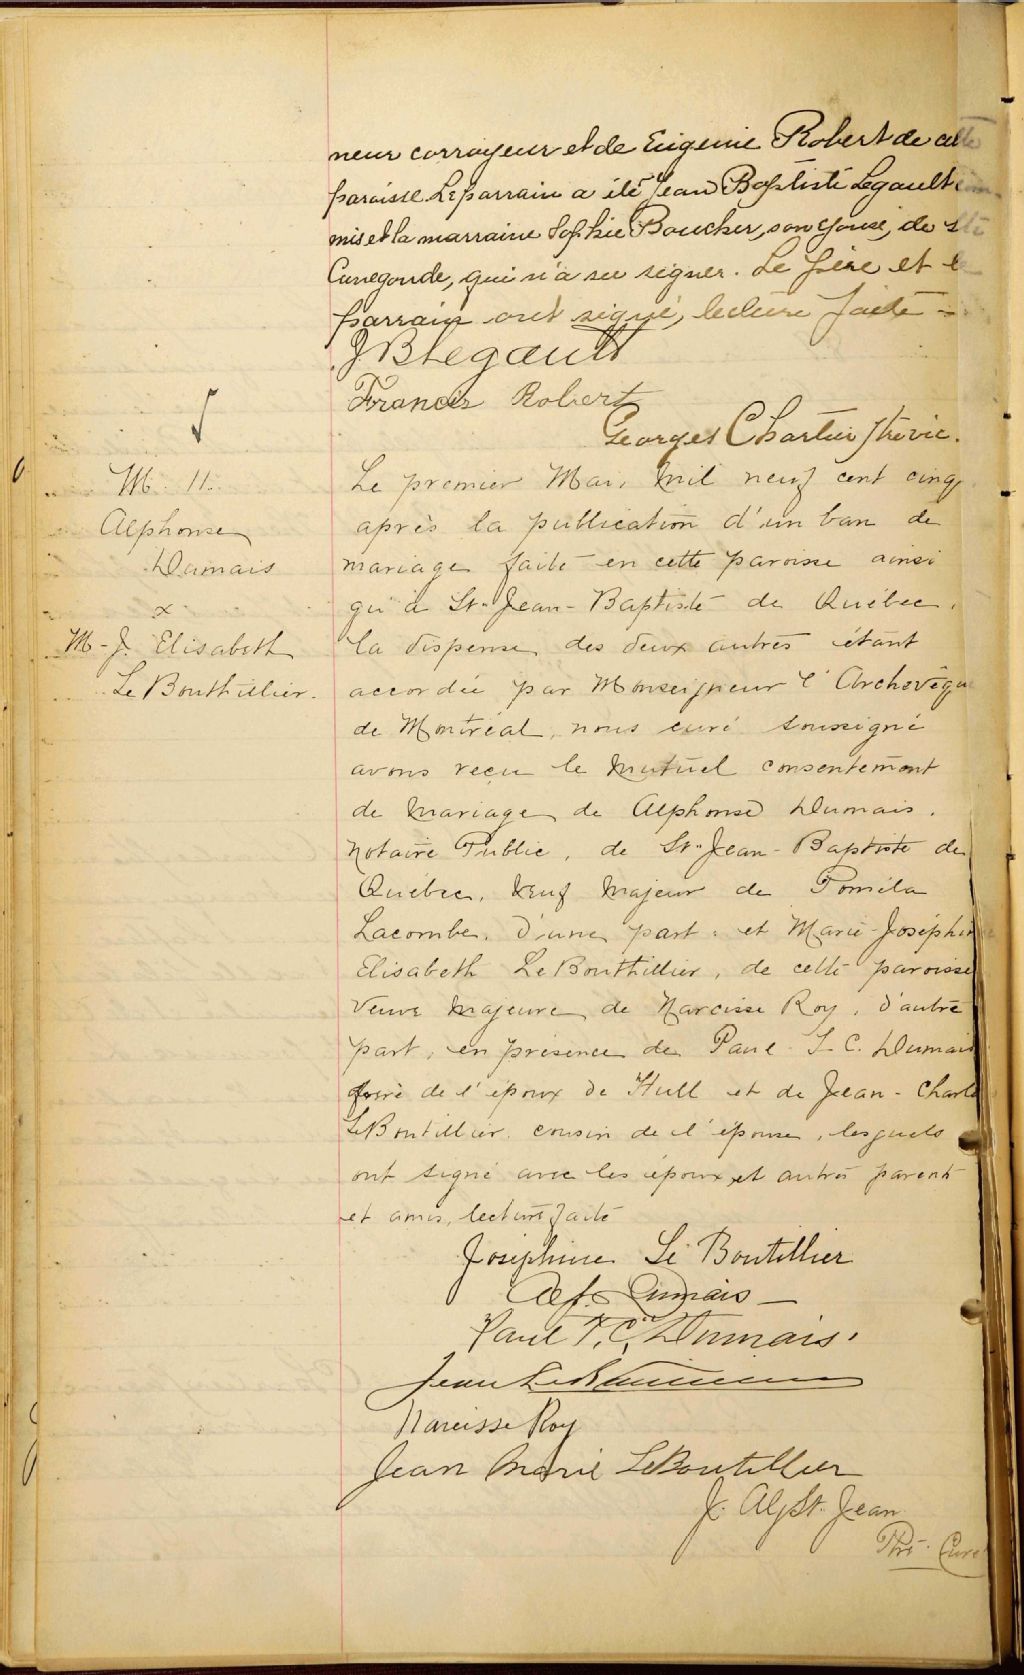 neur corroyeur et de Eugenie Robert de cette
paroisse. Le parrain a été Jean Baptiste Legault com
mis et la marraine Sophie Boucher, son epouse, de Ste
Cunegonde, qui n'a su signer. Le père et le
parrain ont signé, lecture faite -
J B Legault
Francis Robert
Georges Chartier ptre vic.
M. 11.
Alphonse
Dumais
x
M-J. Elisabeth
Le Bouthillier.
Le premier Mai, mil neuf cent cinq
après la publication d'un ban de
mariage faite en cette paroisse ainsi
qu'à St-Jean-Baptiste de Québec,
la dispense des deux autres étant
accordée par Monseigneur l'Archevêque
de Montréal, nous curé soussigné
avons reçu le mutuel consentement
de mariage de Alphonse Dumais,
Notaire Public, de St-Jean-Baptiste de
Québec, veuf majeur de Poméla
Lacombe, d'une part: et Marie-Joséphine
Elisabeth LeBouthillier, de cette paroisse
veuve majeure de Narcisse Roy, d'autre
part, en présence de Paul T. C. Dumais
frère de l'époux de Hull et de Jean-Charles
LeBoutillier, cousin de l'épouse, lesquels
ont signé avec les époux et autres parents
et amis, lecture faite
Joséphine Le Boutillier
Alp. Dumais
Paul T. C. Dumais.
Jean
Narcisse Roy
Jean Marie LeBoutillier
J. Alp St. Jean
Ptre. Curé